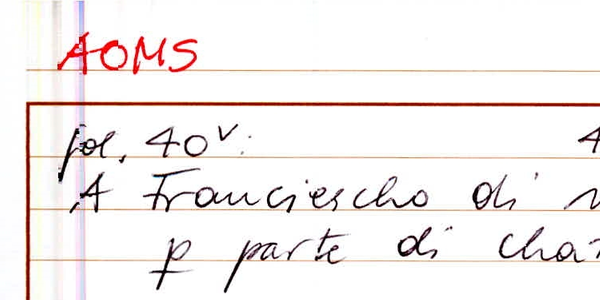 AOMS
fol. 40v:
A Franciescho di
p parte di